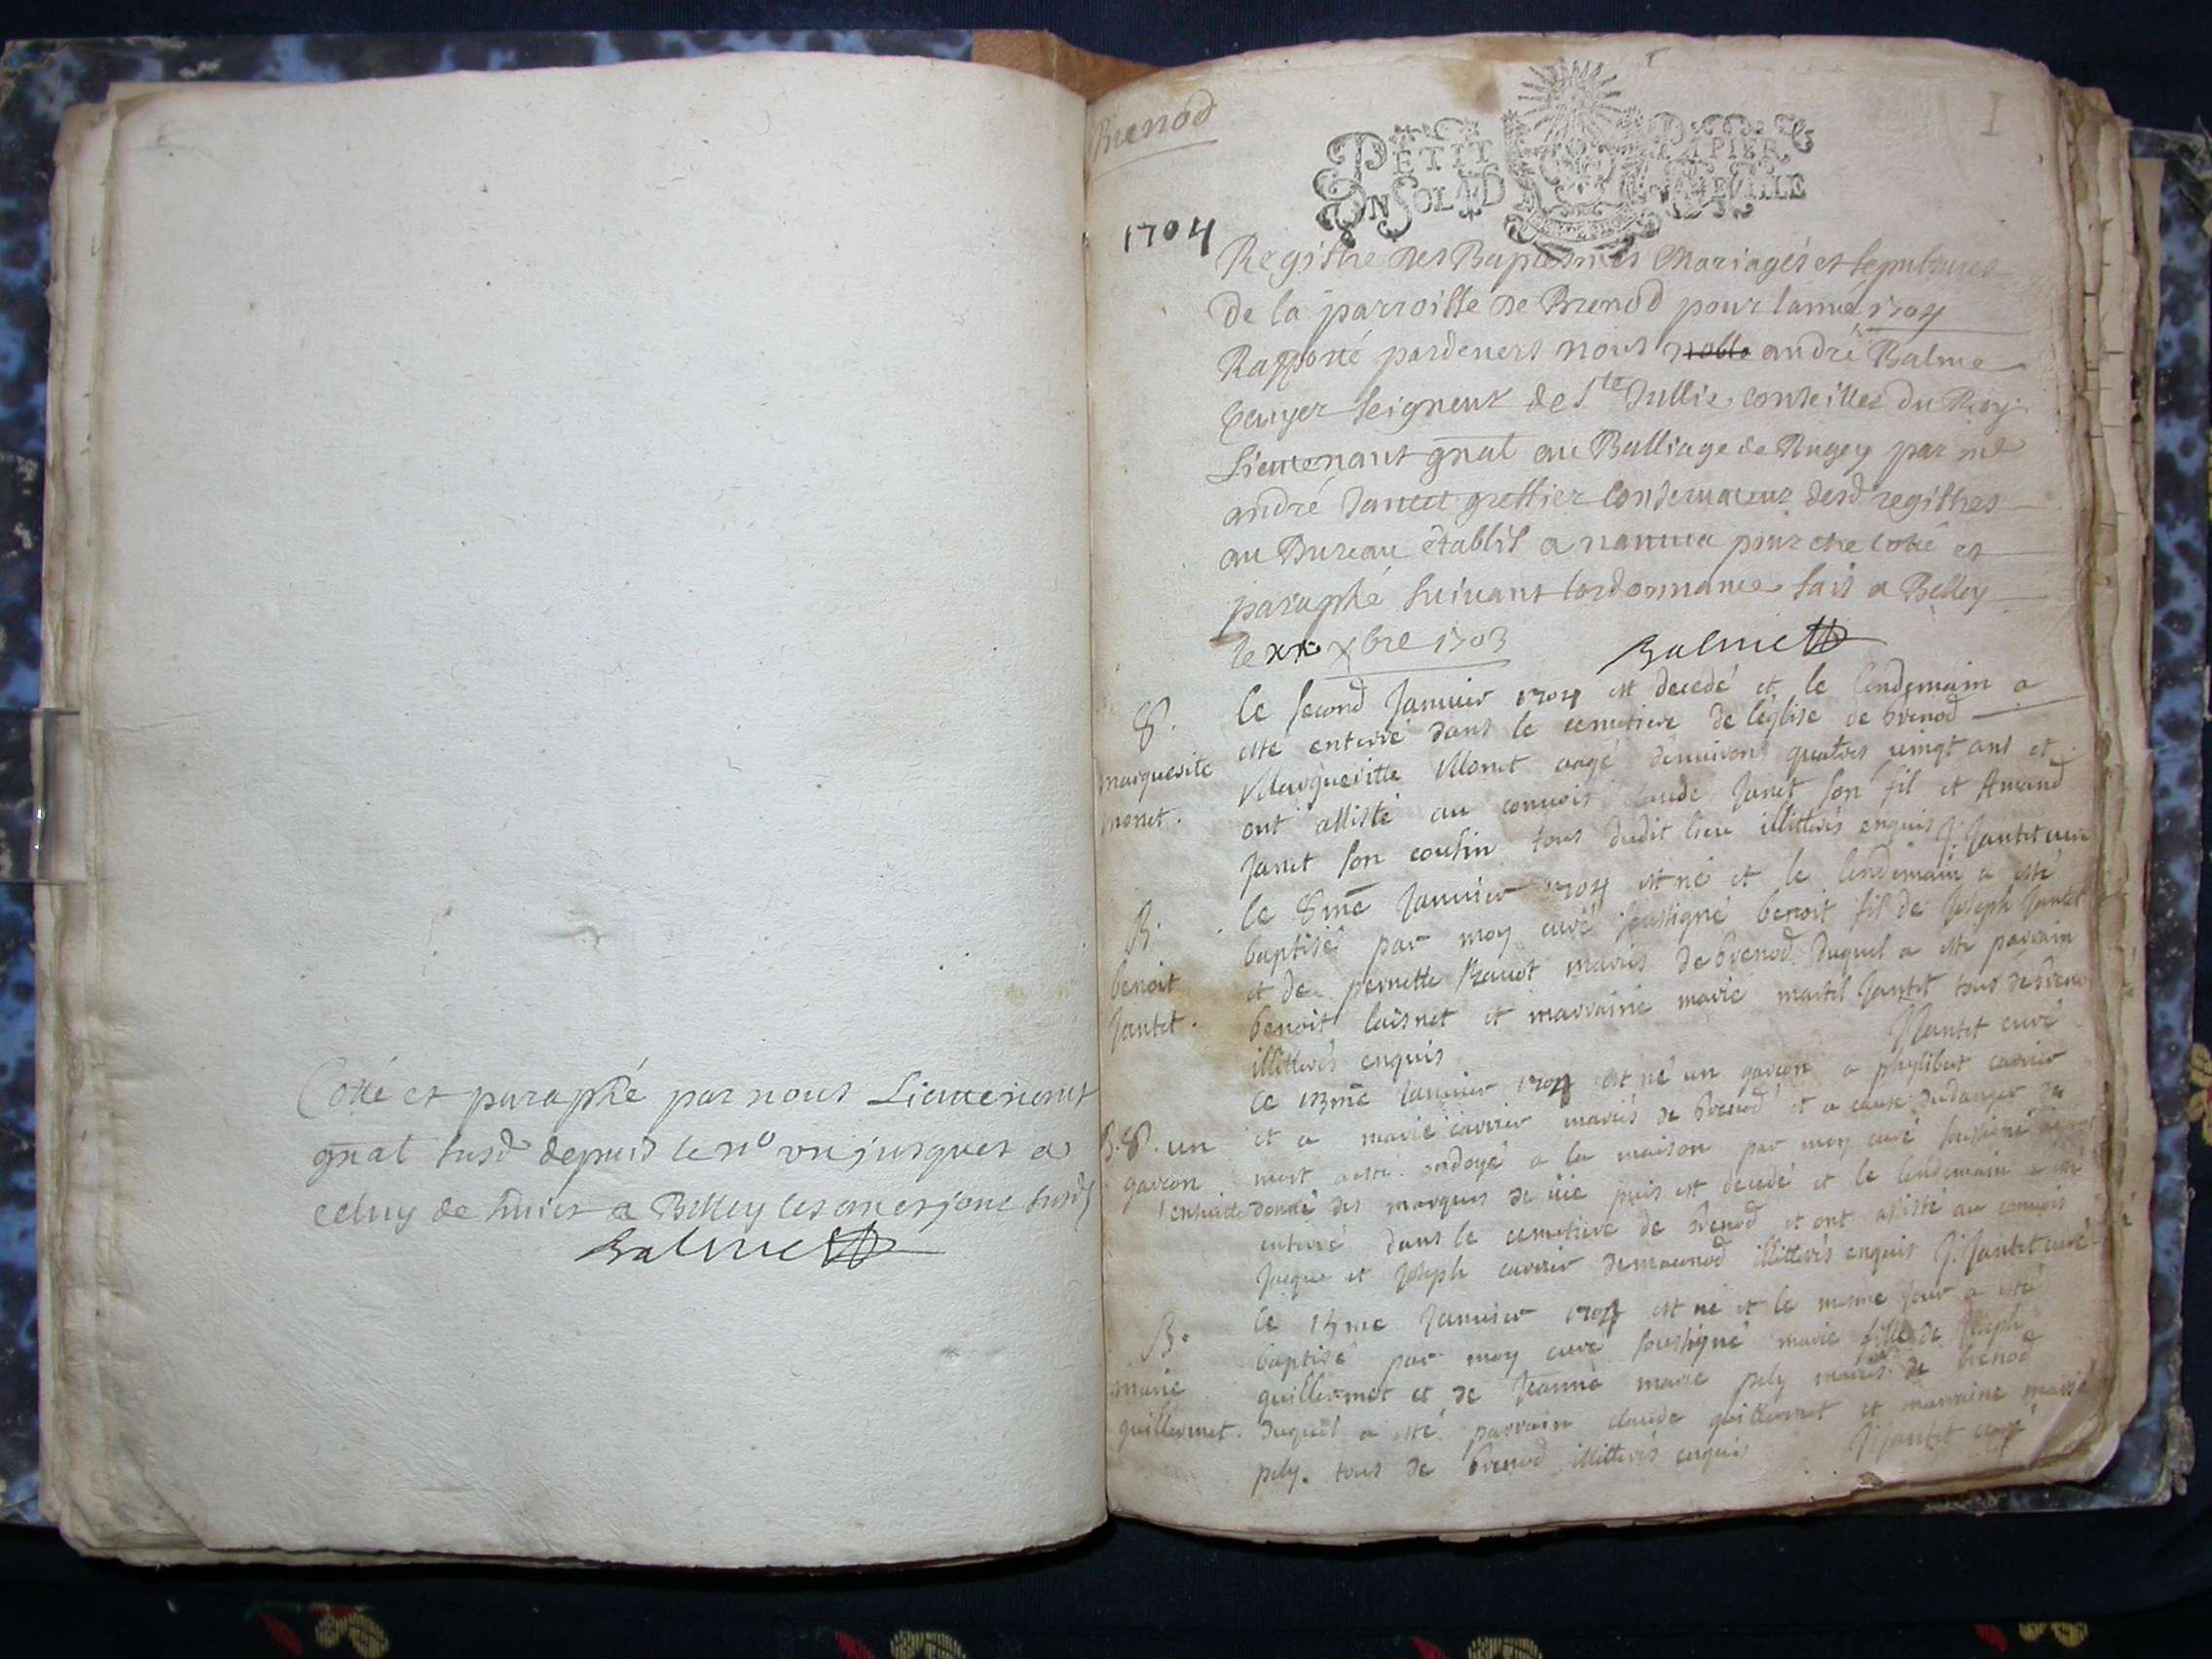 Cotté et paraphé par nous Lieutenent
gnal susd depuis le n° un jusques a
celuy de huict a Belley les an et jour susd
Balme
Brenod
1
PETIT PAPIER
UN SOL LA FEUILLE
1704
Registre des Baptesmes Mariages et sepultures
de la parroisse de Brenod pour lanné 1704
Rapporté pardevers nous noble andré Balme
Ecuyer seigneur de Ste Jullie conseiller du Roy
Lieutenant gnal au Balliage de Bugey par me
andré Jantet greffier conservateur desd registres
au Bureau établis a nantua pour etre cotté et
paraphé suivant lordonnance fait a Belley
le xbre 1703 Balme
S.
marguerite
monet.
le second Janvier 1704 est decedé et le lendemain a
esté enterré dans le cemetiere de léglise de brenod
Margueritte Monet aagé denviron quatres vingt ans et
ont assisté au convois claude Janet son fil et Amand
Janet son cousin tous dudit lieu illitterés enquis J. Jantet curé
B.
benoit
Jantet.
le 8me Janvier 1704 est né et le lendemain a esté
baptisé par moy curé soussigné benoit fil de Joseph Jantet
et de pernette Ravot mariés de brenod duquel a esté parrain
benoit laisnet et marraine marie martel Jantet tous de breno
illitterés enquis J Jantet curé
B. S. un
garcon
le 13me Janvier 1704 est né un garcon a phylibert carrier
et a marie carrier mariés de brenod et a cause du danger de
mort a esté ondoyé a la maison par moy curé soussigné ayant
ensuitte donné des marques de vie puis est decedé et le lendemain a esté
enterré dans le cemetiere de brenod et ont assisté au convois
Jacque et Joseph carrier de macenod illitterés enquis J. Jantet curé
B.
marie
guillermet.
le 15me Janvier 1704 est né et le mesme jour a esté
baptisé par moy curé soussigné marie fille de Joseph
guillermet et de Jeanne marie pely mariés de brenod
duquel a esté parrain claude guillermet et marraine marie
pely. tous de brenod illitterés enquis J Jantet curé